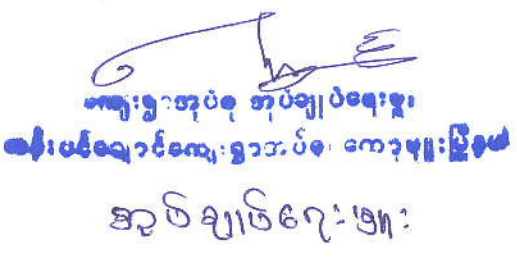 ကျေးရွာအုပ်စု အုပ်ချုပ်ရေးမှူး
ကျေးရွာအုပ်စု၊ ကော့မှူးမြို့နယ်
အုပ်ချုပ်ရေးမှူး